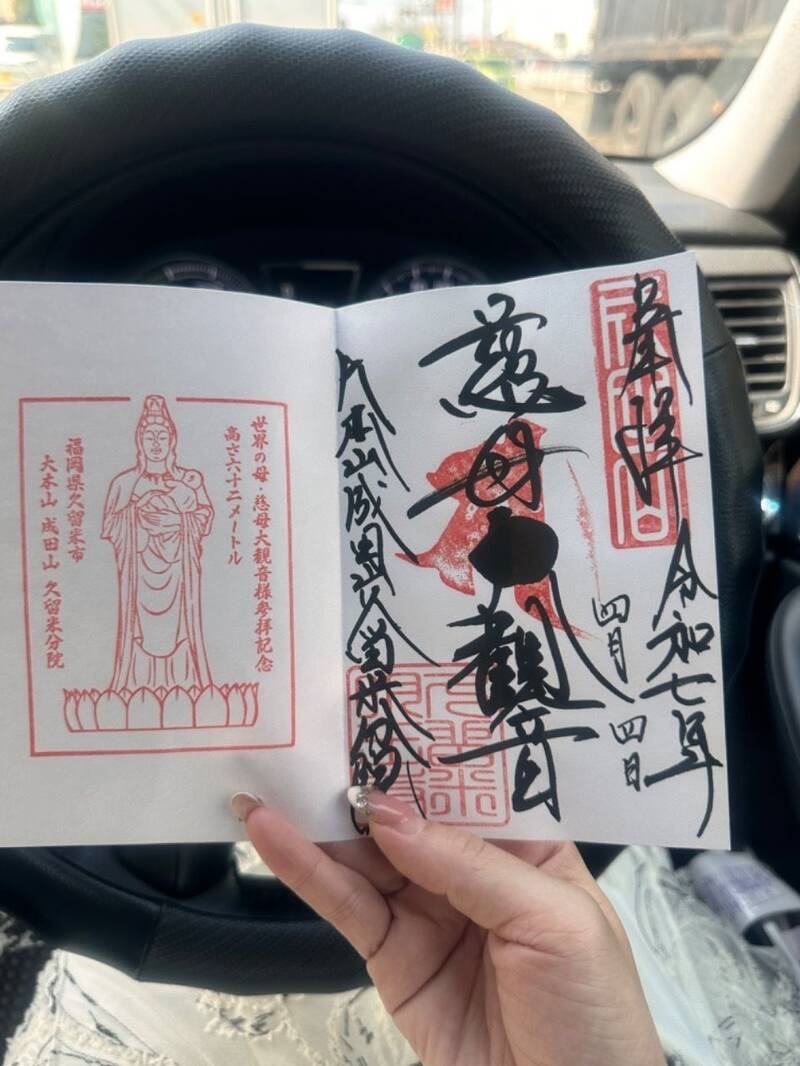 奉拝
令和七年
四月四日
慈母大観音
大本山成田山久留米分院
世界の母・慈母大観音様参拝記念
高さ六十二メートル
福岡県久留米市
大本山 成田山 久留米分院